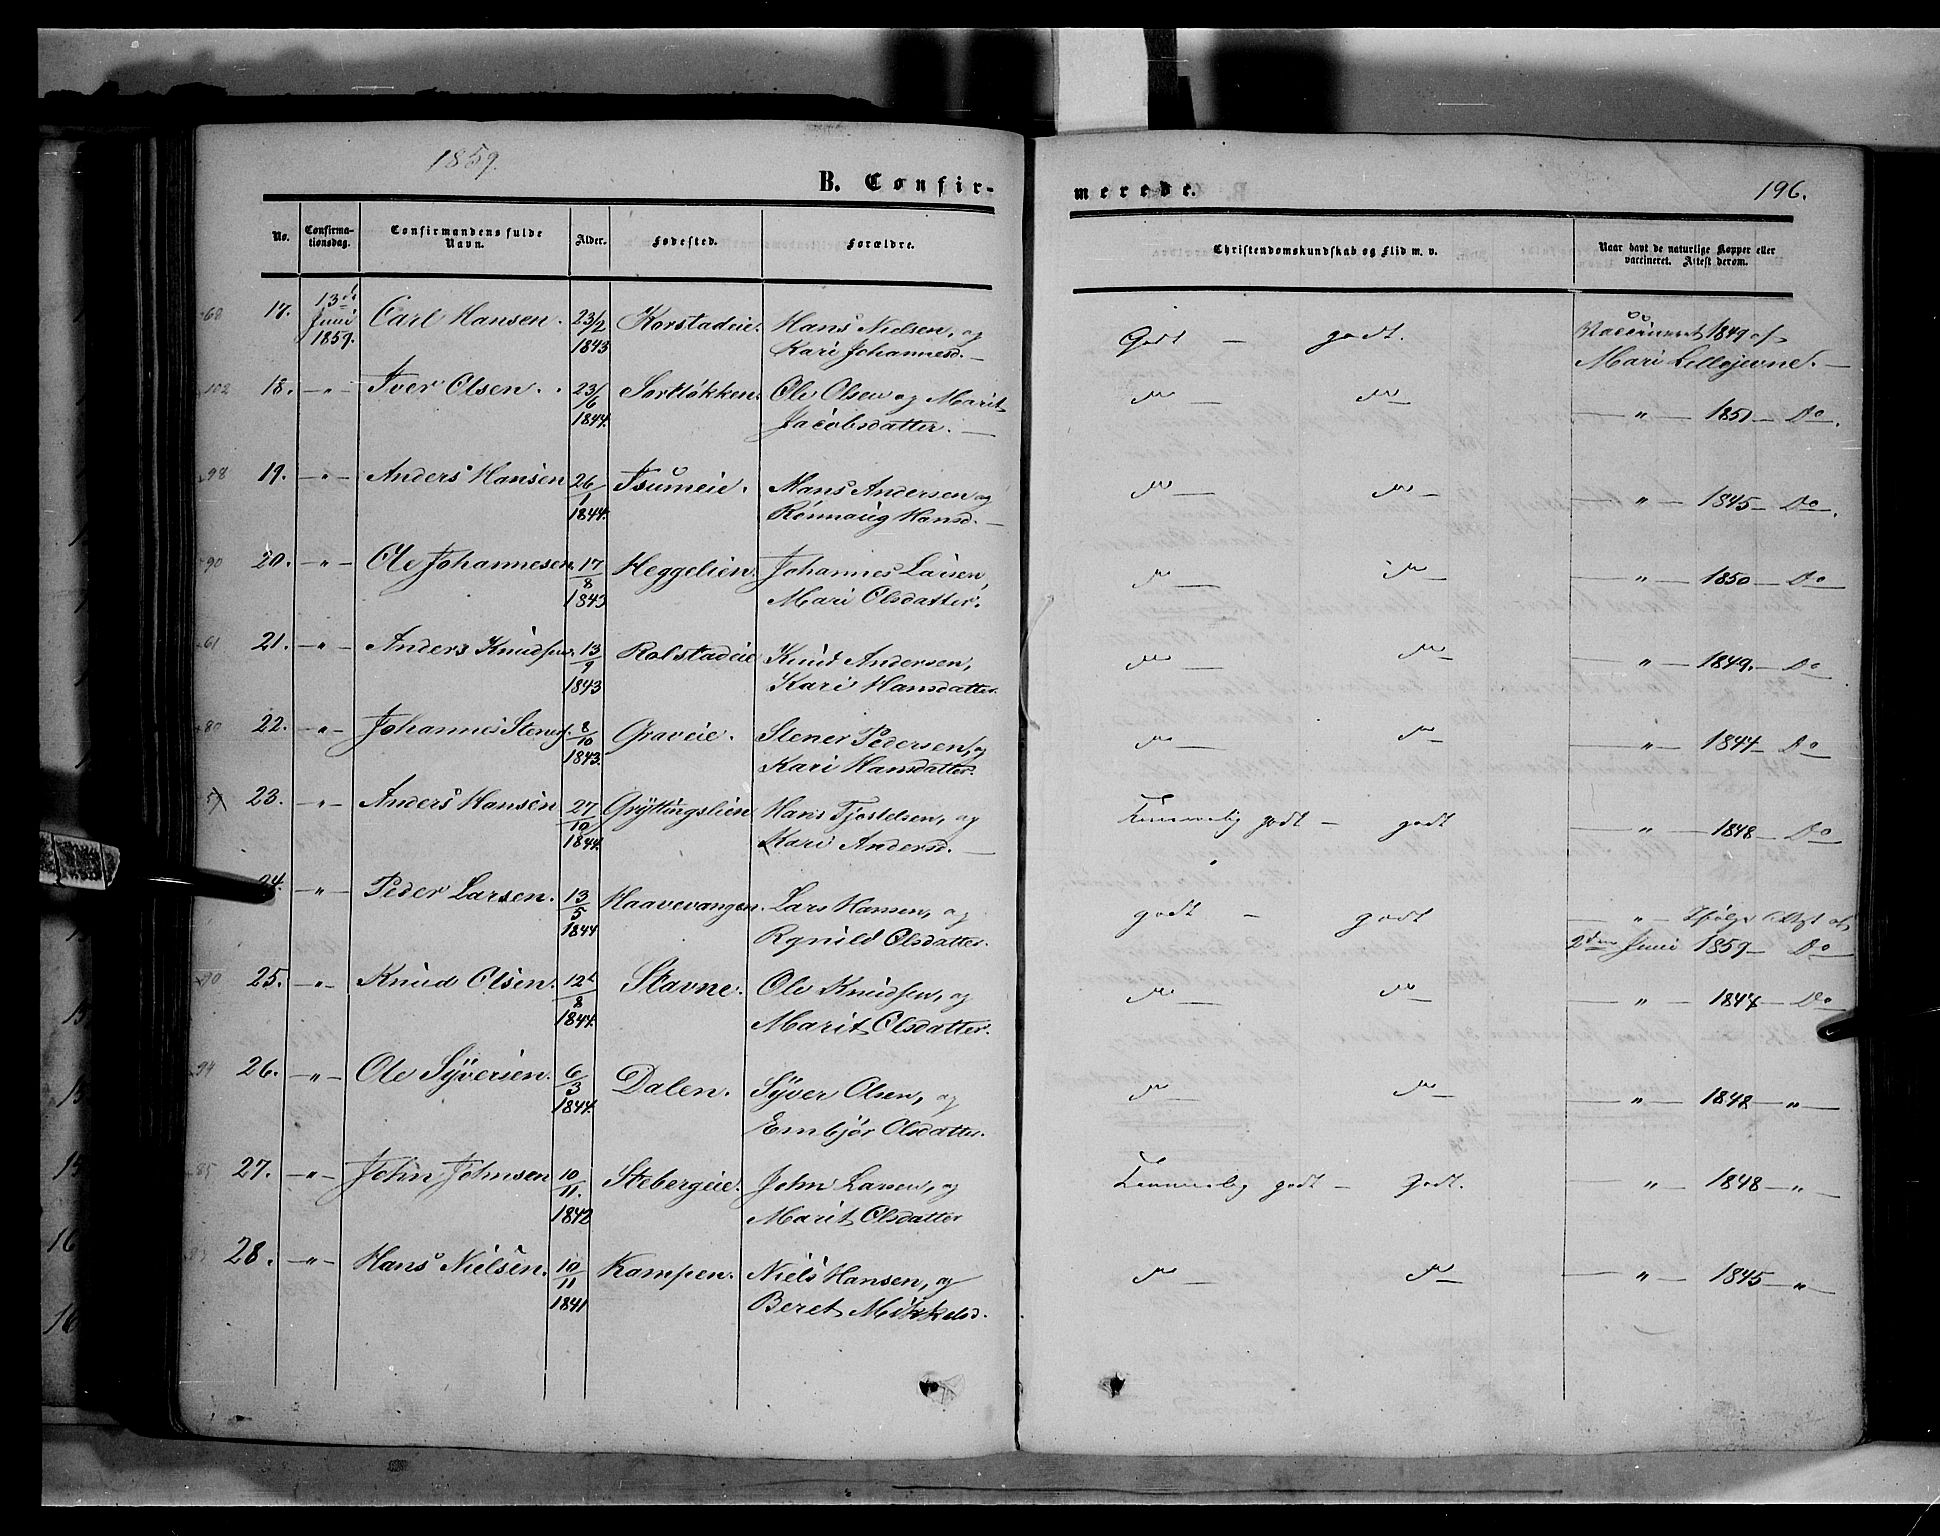 1859.
B. Confir-
merede.
196.
No.
Confirma-
tionsdag.
Confirmandens fulde
Navn.
Alder.
Fødested.
Forældre.
Christendomskundskab og Flid m. v.
Naar havt de naturlige Kopper eller
vaccineret. Attest derom.
68 17. 13de Juni 1859. Carl Hansen. 23/2 1843 Korstadeie. Hans Nielsen, og
Kari Johannesd. —
Godt — godt. Vaccineret 1849 af
Mari Lillejevne. —
102 18. —〃— Iver Olsen. 23/6 1844. Sortløkken. Ole Olsen og Marit
Jacobsdatter. —
— 〃 — 1851 — Do.
98 19. —〃— Anders Hansen 26/1 1844. Isumeie. Hans Andersen og
Rønnaug Hansd. —
— 〃 — 1845 — Do.
90 20. —〃— Ole Johannesen. 17/8 1843 Heggelien. Johannes Larsen,
Mari Olsdatter.
— 〃 — 1850 — Do
61 21. —〃— Anders Knudsen. 13/9 1843 Rolstadeie Knud Andersen,
Kari Hansdatter.
— 〃 — 1849. — Do
80 22. —〃— Johannes Stenersf. 8/10 1843. Graveie. Stener Pedersen, og
Kari Hansdatter.
— 〃 — 1844 — Do
57 23. —〃— Anders Hansen 27/10 1844. Gryttingslien Hans Tjostelsen, og
Kari Andersd. —
Temmelig godt — godt — 〃 — 1848 — Do
24. —〃— Peder Larsen. 13/5 1844 Haavevangen. Lars Hansen, og
Rgnild Olsdatter.
godt — godt — 〃 — Ifølge Attest af
2den Juni 1859 — Do
25. —〃— Knud Olsen. 12/8 1844. Stavne. Ole Knudsen, og
Marit Olsdatter.
— 〃 — 1847 — Do
94 26. —〃— Ole Syversen. 6/3 1844. Dalen. Syver Olsen, og
Embjør Olsdatter.
— 〃 — 1848 — 〃 —
85 27. —〃— John Johnsen 10/11. 1842 Stebergeie. John Larsen, og
Marit Olsdatter
Temmelig godt — godt. — 〃 — 1848 — 〃 —
28. —〃— Hans Nielsen. 10/11 1841 Kampen. Niels Hansen, og
Beret Mikkelsd.
— 〃 — 1845 — 〃 —